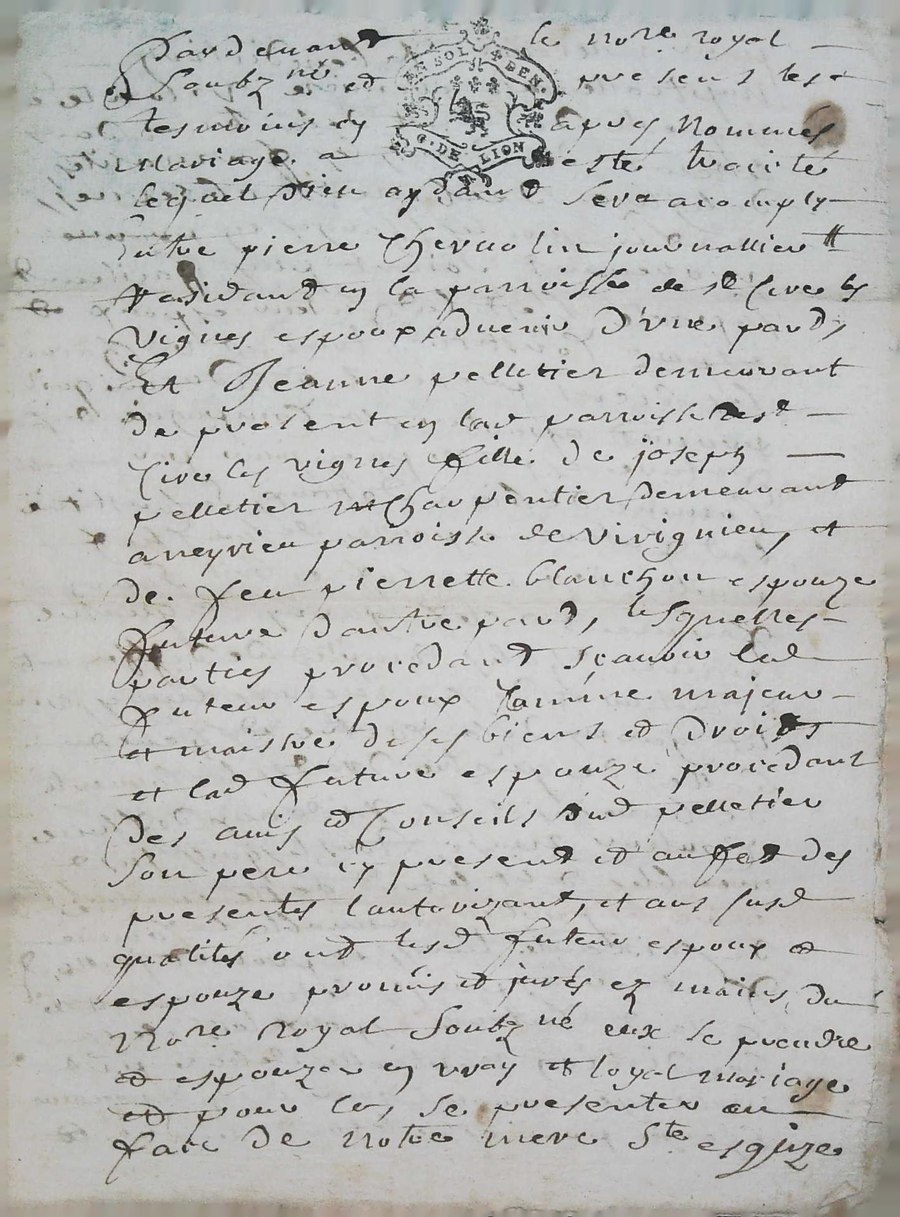 Pardevant le nore royal
Soubzné et presens les
tesmoins cy apres Nommés
EN SOL DEN.
G. DE LION
Mariage a esté traité
lequel Dieu aydant Sera acomply
Entre pierre Chervolin journallier
Residant en la parroisse de st Cire les
Vignes espoux advenir D'vne pard,
Et Jeanne pelletier demeurant
de present en lad parroisse de st
Cire les vignes fille de joseph
pelletier Charpentier Demeurant
a neyrieu parroisse de Virignieu, et
de feu pierrette blanchon espouze
future Dautre pard, lesquelles
parties procedant scauoir led
futeur espoux Comme majeur
et maistre de ses biens et Droits
et lad future espouze procedant
Des auis et Conseils dud pelletier
Son pere cy present et au ffet des
presentes lautorizant, et aus susd
qualités ont lesd futeur espoux et
espouze promis et jurés ez mains du
Nore Royal Soubzné eux se prendre
et espouzer en vray et loyal mariage
et pour ce, se presenter en
face de notre mere Ste esglize